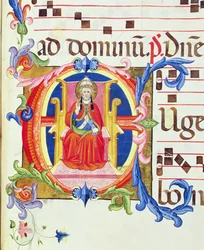 ad dominū. p̄. Dn̄e
Uge
bo in